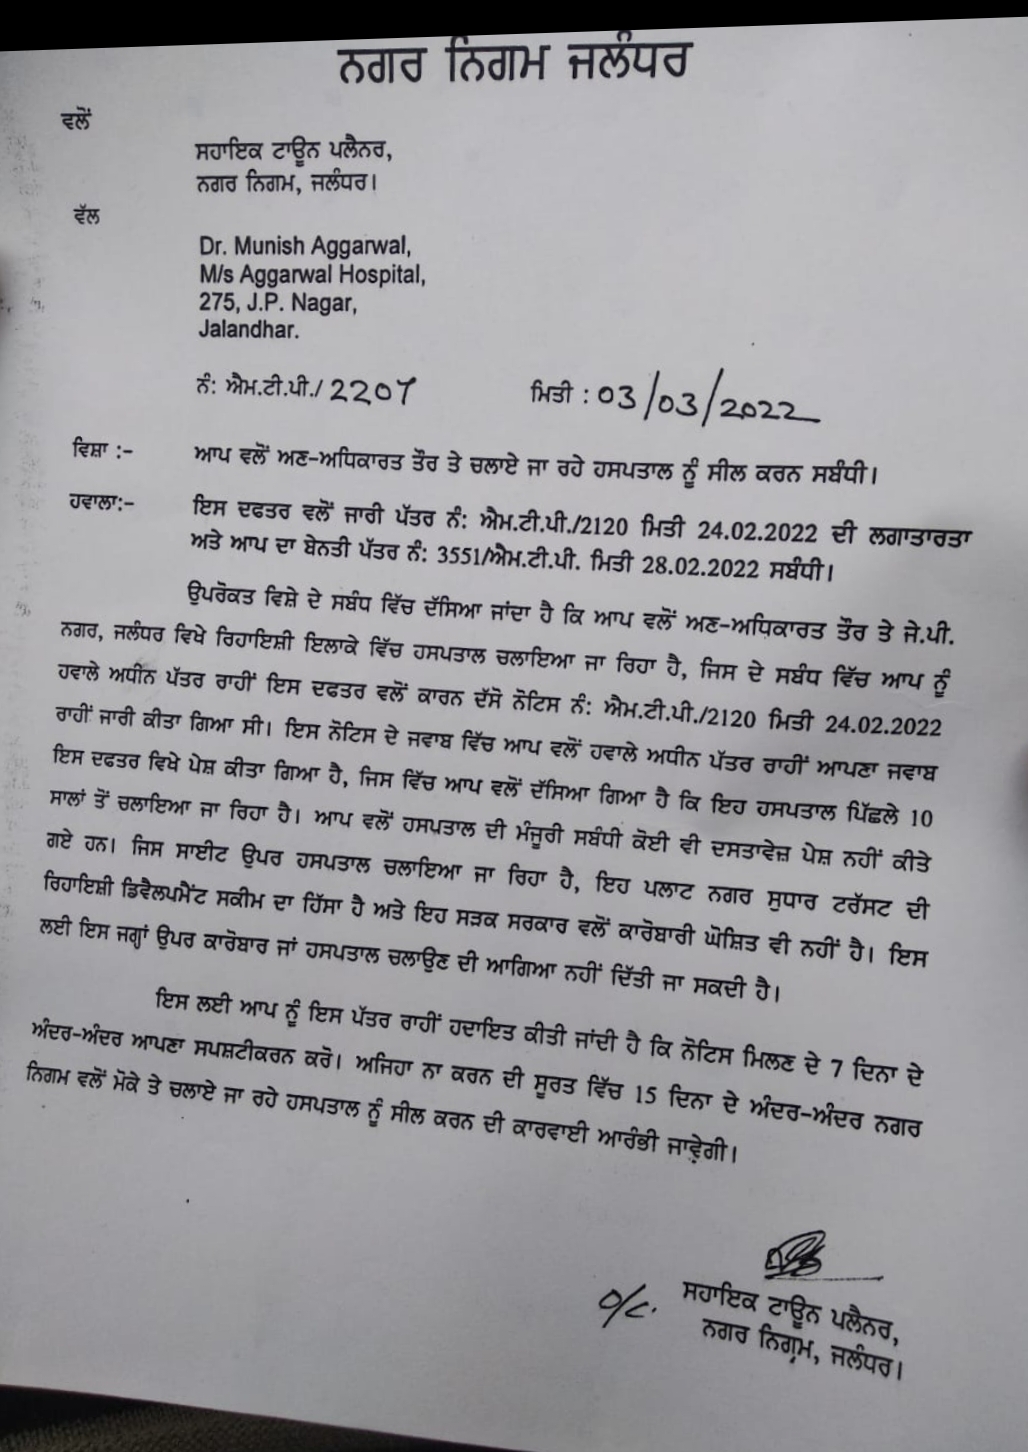 ਨਗਰ ਨਿਗਮ ਜਲੰਧਰ
ਵਲੋਂ
ਸਹਾਇਕ ਟਾਊਨ ਪਲੈਨਰ,
ਨਗਰ ਨਿਗਮ, ਜਲੰਧਰ।
ਵੱਲ
Dr. Munish Aggarwal,
M/s Aggarwal Hospital,
275, J.P. Nagar,
Jalandhar.
ਨੰ: ਐਮ.ਟੀ.ਪੀ./ 2207 ਮਿਤੀ : 03/03/2022
ਵਿਸ਼ਾ :- ਆਪ ਵਲੋਂ ਅਣ-ਅਧਿਕਾਰਤ ਤੌਰ ਤੇ ਚਲਾਏ ਜਾ ਰਹੇ ਹਸਪਤਾਲ ਨੂੰ ਸੀਲ ਕਰਨ ਸਬੰਧੀ।
ਹਵਾਲਾ:- ਇਸ ਦਫਤਰ ਵਲੋਂ ਜਾਰੀ ਪੱਤਰ ਨੰ: ਐਮ.ਟੀ.ਪੀ./2120 ਮਿਤੀ 24.02.2022 ਦੀ ਲਗਾਤਾਰਤਾ
ਅਤੇ ਆਪ ਦਾ ਬੇਨਤੀ ਪੱਤਰ ਨੰ: 3551/ਐਮ.ਟੀ.ਪੀ. ਮਿਤੀ 28.02.2022 ਸਬੰਧੀ।
ਉਪਰੋਕਤ ਵਿਸ਼ੇ ਦੇ ਸਬੰਧ ਵਿੱਚ ਦੱਸਿਆ ਜਾਂਦਾ ਹੈ ਕਿ ਆਪ ਵਲੋਂ ਅਣ-ਅਧਿਕਾਰਤ ਤੌਰ ਤੇ ਜੇ.ਪੀ.
ਨਗਰ, ਜਲੰਧਰ ਵਿਖੇ ਰਿਹਾਇਸ਼ੀ ਇਲਾਕੇ ਵਿੱਚ ਹਸਪਤਾਲ ਚਲਾਇਆ ਜਾ ਰਿਹਾ ਹੈ, ਜਿਸ ਦੇ ਸਬੰਧ ਵਿੱਚ ਆਪ ਨੂੰ
ਹਵਾਲੇ ਅਧੀਨ ਪੱਤਰ ਰਾਹੀਂ ਇਸ ਦਫਤਰ ਵਲੋਂ ਕਾਰਨ ਦੱਸੋ ਨੋਟਿਸ ਨੰ: ਐਮ.ਟੀ.ਪੀ./2120 ਮਿਤੀ 24.02.2022
ਰਾਹੀਂ ਜਾਰੀ ਕੀਤਾ ਗਿਆ ਸੀ। ਇਸ ਨੋਟਿਸ ਦੇ ਜਵਾਬ ਵਿੱਚ ਆਪ ਵਲੋਂ ਹਵਾਲੇ ਅਧੀਨ ਪੱਤਰ ਰਾਹੀਂ ਆਪਣਾ ਜਵਾਬ
ਇਸ ਦਫਤਰ ਵਿਖੇ ਪੇਸ਼ ਕੀਤਾ ਗਿਆ ਹੈ, ਜਿਸ ਵਿੱਚ ਆਪ ਵਲੋਂ ਦੱਸਿਆ ਗਿਆ ਹੈ ਕਿ ਇਹ ਹਸਪਤਾਲ ਪਿੱਛਲੇ 10
ਸਾਲਾਂ ਤੋਂ ਚਲਾਇਆ ਜਾ ਰਿਹਾ ਹੈ। ਆਪ ਵਲੋਂ ਹਸਪਤਾਲ ਦੀ ਮੰਜੂਰੀ ਸਬੰਧੀ ਕੋਈ ਵੀ ਦਸਤਾਵੇਜ਼ ਪੇਸ਼ ਨਹੀਂ ਕੀਤੇ
ਗਏ ਹਨ। ਜਿਸ ਸਾਈਟ ਉਪਰ ਹਸਪਤਾਲ ਚਲਾਇਆ ਜਾ ਰਿਹਾ ਹੈ, ਇਹ ਪਲਾਟ ਨਗਰ ਸੁਧਾਰ ਟਰੱਸਟ ਦੀ
ਰਿਹਾਇਸ਼ੀ ਡਿਵੈਲਪਮੈਂਟ ਸਕੀਮ ਦਾ ਹਿੱਸਾ ਹੈ ਅਤੇ ਇਹ ਸੜਕ ਸਰਕਾਰ ਵਲੋਂ ਕਾਰੋਬਾਰੀ ਘੋਸ਼ਿਤ ਵੀ ਨਹੀਂ ਹੈ। ਇਸ
ਲਈ ਇਸ ਜਗ੍ਹਾਂ ਉਪਰ ਕਾਰੋਬਾਰ ਜਾਂ ਹਸਪਤਾਲ ਚਲਾਉਣ ਦੀ ਆਗਿਆ ਨਹੀਂ ਦਿੱਤੀ ਜਾ ਸਕਦੀ ਹੈ।
ਇਸ ਲਈ ਆਪ ਨੂੰ ਇਸ ਪੱਤਰ ਰਾਹੀਂ ਹਦਾਇਤ ਕੀਤੀ ਜਾਂਦੀ ਹੈ ਕਿ ਨੋਟਿਸ ਮਿਲਣ ਦੇ 7 ਦਿਨਾ ਦੇ
ਅੰਦਰ-ਅੰਦਰ ਆਪਣਾ ਸਪਸ਼ਟੀਕਰਨ ਕਰੋ। ਅਜਿਹਾ ਨਾ ਕਰਨ ਦੀ ਸੂਰਤ ਵਿੱਚ 15 ਦਿਨਾ ਦੇ ਅੰਦਰ-ਅੰਦਰ ਨਗਰ
ਨਿਗਮ ਵਲੋਂ ਮੋਕੇ ਤੇ ਚਲਾਏ ਜਾ ਰਹੇ ਹਸਪਤਾਲ ਨੂੰ ਸੀਲ ਕਰਨ ਦੀ ਕਾਰਵਾਈ ਆਰੰਭੀ ਜਾਵੇਗੀ।
o/c.
ਸਹਾਇਕ ਟਾਊਨ ਪਲੈਨਰ,
ਨਗਰ ਨਿਗਮ, ਜਲੰਧਰ।